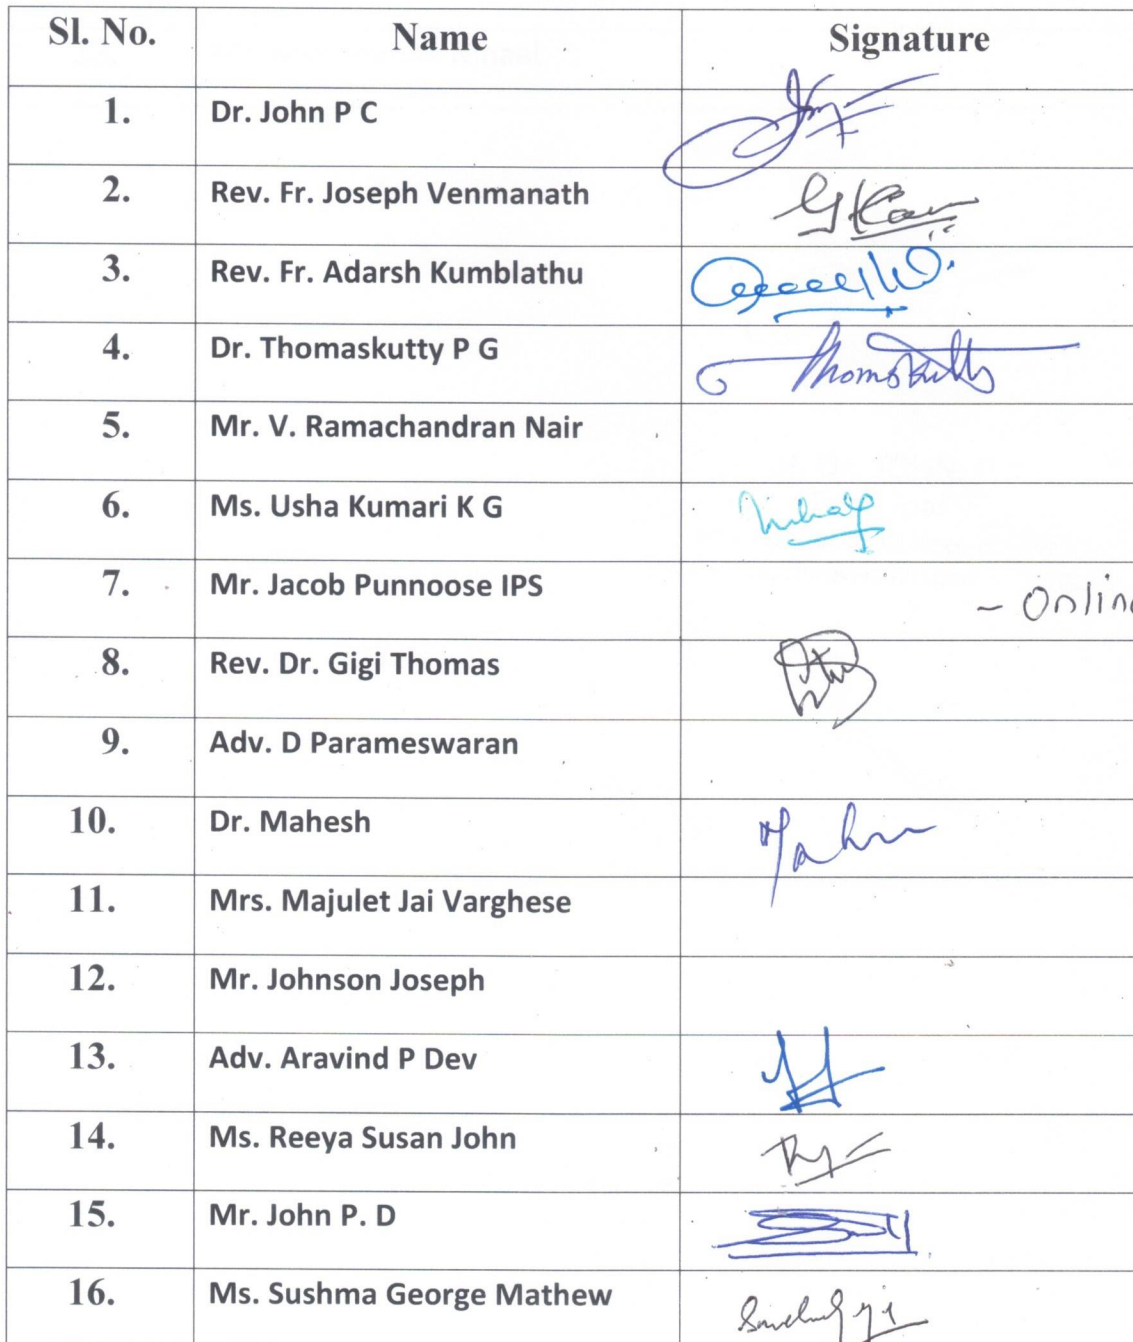 Sl. No. Name Signature
1. Dr. John P C
2. Rev. Fr. Joseph Venmanath
3. Rev. Fr. Adarsh Kumblathu
4. Dr. Thomaskutty P G Thomskutty
5. Mr. V. Ramachandran Nair
6. Ms. Usha Kumari K G
7. Mr. Jacob Punnoose IPS - Online
8. Rev. Dr. Gigi Thomas
9. Adv. D Parameswaran
10. Dr. Mahesh
11. Mrs. Majulet Jai Varghese
12. Mr. Johnson Joseph
13. Adv. Aravind P Dev
14. Ms. Reeya Susan John
15. Mr. John P. D
16. Ms. Sushma George Mathew